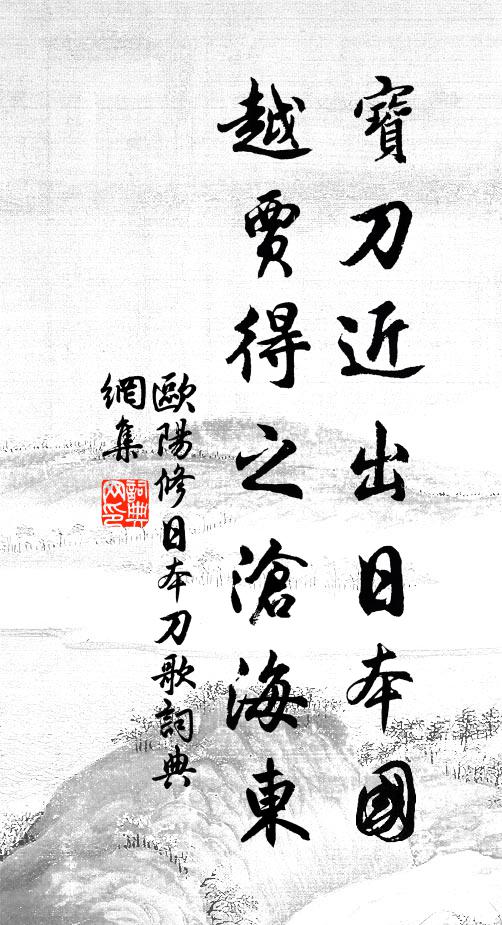 寶刀近出日本國
越賈得之滄海東
歐陽修日本刀歌詞典
網集
詞典
网印